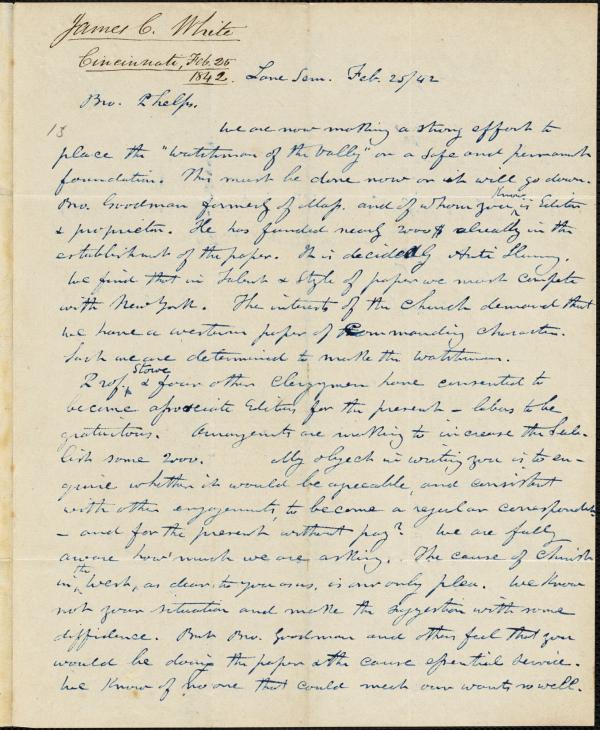 James C. White
Cincinnati, Feb. 25
1842.
Lane Sem. Feb. 25/42
Bro. Phelps.
13
We are now making a strong effort to
place the "Watchman of the Vally" on a safe and permanent
foundation. This must be done now or it will go down.
Bro. Goodman formerly of Mass. and of whom you Know is Editor
& proprietor. He has funded nearly 2000$ already in the
establishment of the paper. It is decidedly Anti Slavery.
We find that in Talent & Style of paper we must compete
with New York. The interests of the Church demand that
we have a western paper of Commanding character.
Such we are determined to make the Watchman.
Prof. Stowe & four other Clergymen have consented to
become associate Editors for the present – labors to be
gratuitous. Arrangemts are making to increase the Sub-
list some 2000. My object in writing you is to en-
quire whether it would be agreeable, and consistent
with other engagements, to become a regular correspondent
– and for the present without pay? We are fully
aware how much we are asking. The cause of Christ
in the West, as dear to you as us, is our only plea. We Know
not your situation and make the suggestion with some
diffidence. But Bro. Goodman and others feel that you
would be doing the paper & the cause essential service.
We Know of no one that could meet our wants so well.